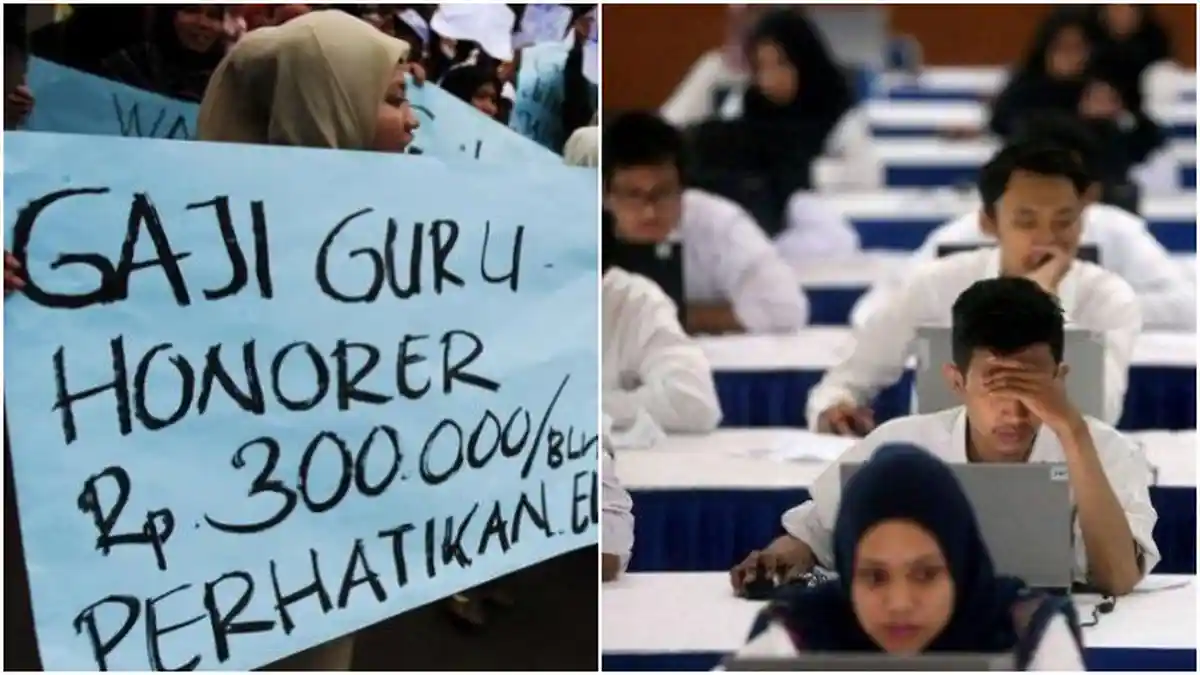 GAJI GURU
HONORER
Rp. 300.000/BLN
PERHATIKAN